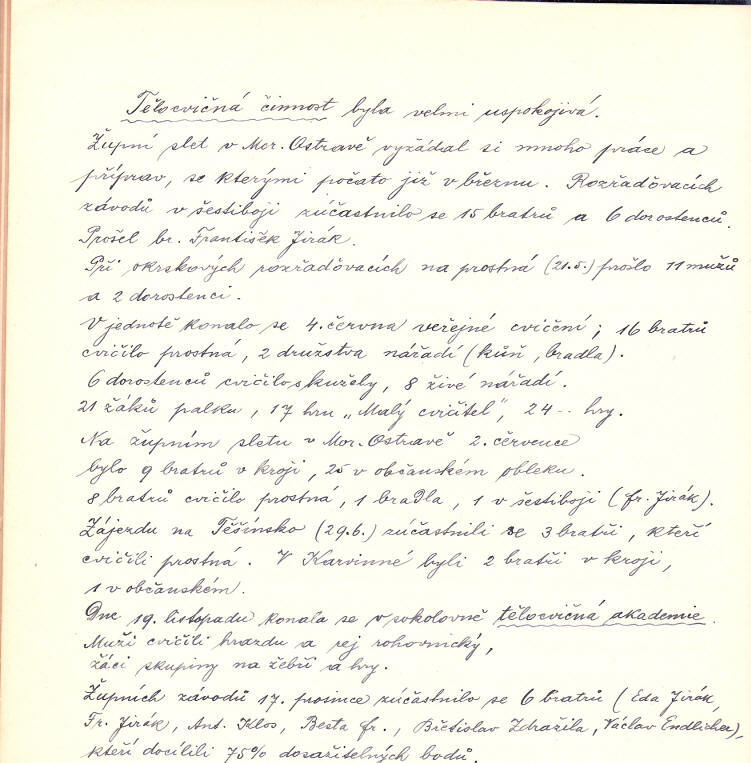 Tělocvičná činnost byla velmi uspokojivá.
Župní slet v Mor. Ostravě vyžádal si mnoho práce a
příprav, se kterými počato již v březnu. Rozřaďovacích
závodů v šestiboji zúčastnilo se 15 bratrů a 6 dorostenců.
Prošel br. František Jirák.
Při okrskových rozřaďovacích na prostná (21.5.) prošlo 11 mužů
a 2 dorostenci.
V jednotě konalo se 4. června veřejné cvičení; 16 bratrů
cvičilo prostná, 2 družstva nářadí (kůň, bradla).
6 dorostenců cvičilo s kužely, 8 živé nářadí.
21 žáků palku, 17 hru „Malý cvičitel", 24 -- hry.
Na župním sletu v Mor. Ostravě 2. července
bylo 9 bratrů v kroji, 25 v občanském obleku.
8 bratrů cvičilo prostná, 1 bradla, 1 v šestiboji (fr. Jirák).
Zájezdu na Těšínsko (29.6.) zúčastnili se 3 bratři, kteří
cvičili prostná. V Karvinné byli 2 bratři v kroji,
1 v občanském.
Dne 19. listopadu konala se v sokolovně tělocvičná akademie.
Muži cvičili hrazdu a rej rohovnický,
žáci skupiny na žebři a hry.
Župních závodů 17. prosince zúčastnilo se 6 bratrů (Eda Jirák,
Fr. Jirák, Ant. Klos, Besta fr., Břetislav Zdražila, Václav Endlicher),
kteří docílili 75% dosažitelných bodů.